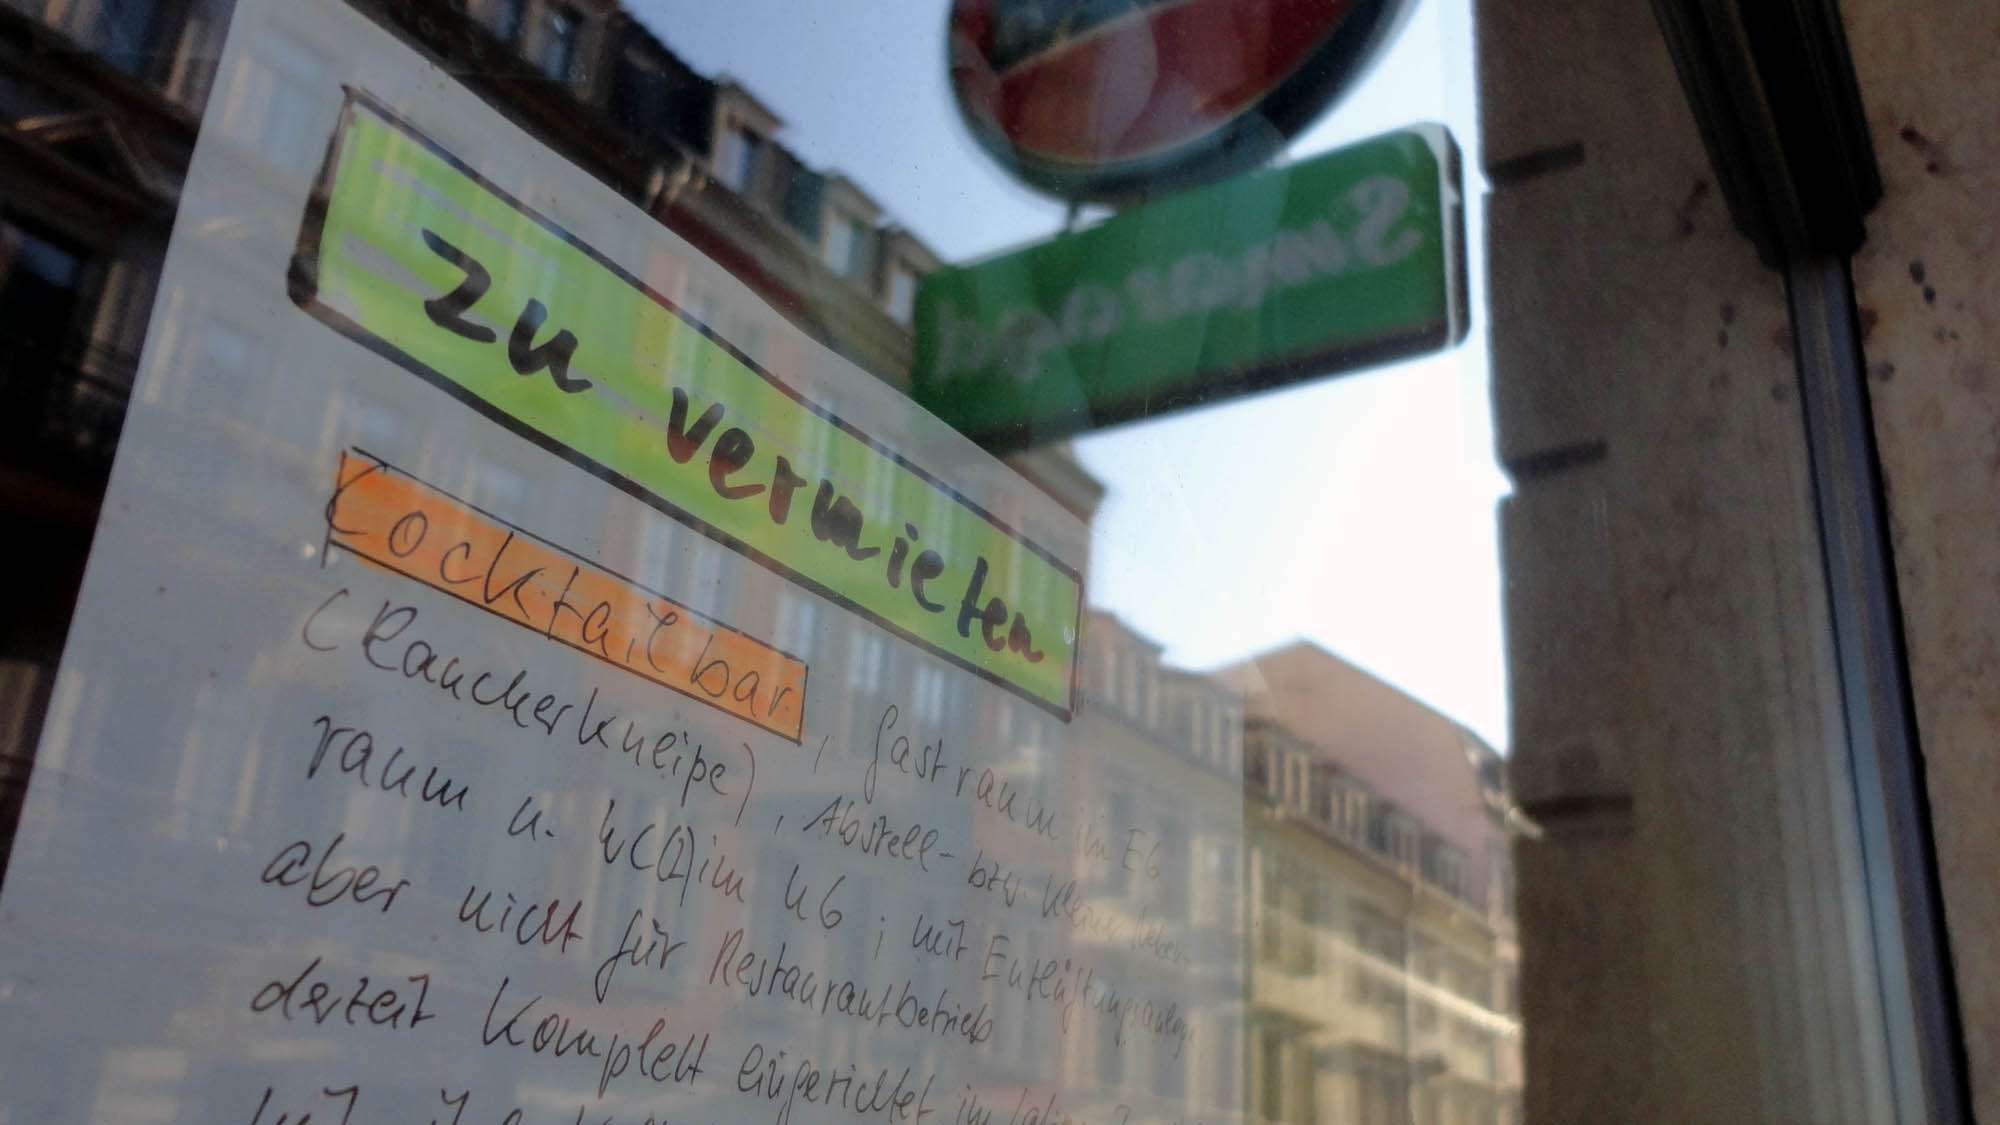 zu vermieten
Cocktailbar, Gastraum im EG
(Raucherkneipe), Abstell- bzw. kleiner Neben-
raum u. WC(2) im UG; mit Entlüftungsanlage
aber nicht für Restaurantbetrieb
derzeit komplett eingerichtet im